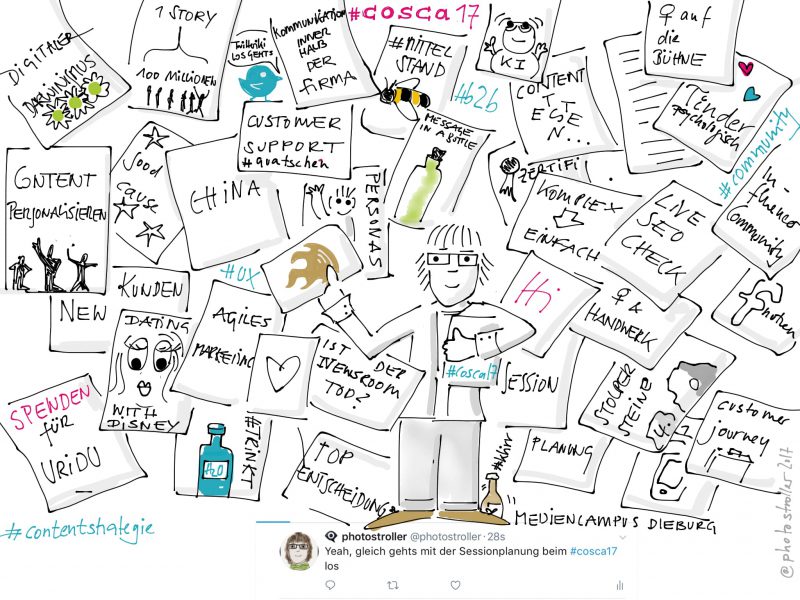 #cosca17
DIGITALER
DARWINISMUS
1 STORY
100 MILLIONEN
KOMMUNIKATION
INNER
HALB
DER
FIRMA
LOS GEHTS
#MITTEL
STAND
#b2b
KI
CONTENT
♀ auf
die
BÜHNE
Tinder
psychologisch
#community
CUSTOMER
SUPPORT
#quatschen
MESSAGE
IN A BOTTLE
ZERTIFI
PERSONAS
CONTENT
PERSONALISIEREN
good
cause
CHINA
KOMPLEX
EINFACH
LIVE
SEO
CHECK
In-
fluencer
Community
#UX
NEW
KUNDEN
AGILES
MARKETING
Hi
♀ &
HANDWERK
DATING
WITH DISNEY
IST DER
NEWSROOM
TOD?
#cosca17
SESSION
PLANUNG
STOLPER
STEINE
4.0
customer
journey
SPENDEN
für
URIDU
H2O
#TRINKT
TOP
ENTSCHEIDUNG
#klirr
MEDIENCAMPUS DIEBURG
#contentstrategie
@photostroller 2017
photostroller @photostroller · 28s
Yeah, gleich gehts mit der Sessionplanung beim #cosca17
los